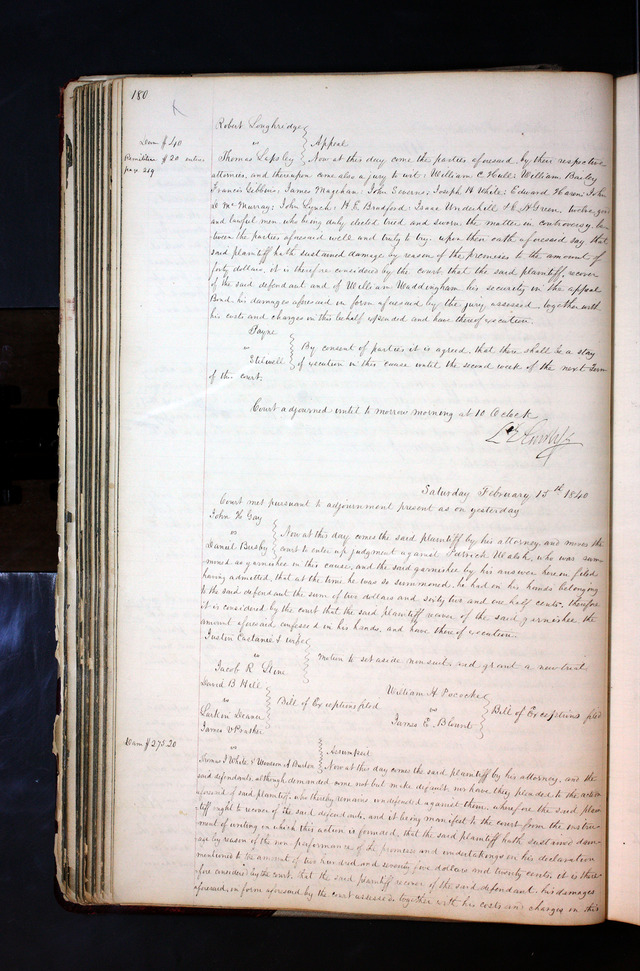 180
Robert Loughridge
vs
Appeal
Dam $40
Remittitur $20 entered
page 219
Thomas Lapsley Now at this day come the parties aforesaid by their respective
attornies, and thereupon come also a jury to wit: William C. Hull: William Bailey
Francis Gibbons: James Magehan: John Severns: Joseph H White: Edward Haven: John
Mc Murray: John Lynch: H. E. Bradford: Isaac Underhill & A Green, twelve good
and lawful men who being duly elected tried and sworn the matter in controversy be-
tween the parties aforesaid well and truly to try: upon their oath aforesaid say that
said plaintiff hath sustained damage by reason of the premises to the amount of
forty dollars, it is therefore considered by the court that the said plaintiff, recover
of the said defendant and of William Waddingham his security in the appeal
Bond, his damages aforesaid in form aforesaid by the jury assessed, together with
his costs and charges in this behalf expended and have thereof execution.
Payne
vs
Stilwell
By consent of parties it is agreed, that there shall be a stay
of execution in this cause until the second week of the next Term
of this court.
Court adjourned until to morrow morning at 10 O'Clock
Saturday February 15th 1840
Court met pursuant to adjournment present as on yesterday
John H Gay
vs
Daniel Busby
Now at this day comes the said plaintiff by his attorney and moves the
court to enter up judgment against Patrick Walsh, who was sum-
moned as garnishee in this cause, and the said garnishee by his answer herein filed
having admitted, that at the time he was so summoned, he had in his hands belonging
to the said defendant the sum of two dollars and sixty two and one half cents. therefore
it is considered by the court that the said plaintiff recover of the said garnishee the
amount aforesaid confessed in his hands, and have thereof execution.
Justin Castanie & wife
vs
Jacob R. Stine
Motion to set aside nonsuit and grant a new trial
David B Hill
vs
Larkin Deaver
Bill of Exceptions filed
William H Pococke
vs
James E. Blount
Bill of Exceptions filed
James Prather
Dam $275.20
vs
Thomas J White & Woodson A
Assumpsit
Now at this day comes the said plaintiff by his attorney, and the
said defendants, although demanded come not but make default, nor have they pleaded to the action
aforesaid of said plaintiff, who thereby remains undefended against them. wherefore the said plain-
tiff ought to recover of the said defendants, and it being manifest to the court from the instru-
ment of writing on which this action is founded, that the said plaintiff hath sustained dam-
age by reason of the non-performance of the promises and undertakings in his declaration
mentioned to the amount of two hundred and seventy five dollars and twenty cents. it is there-
fore considered by the court that the said plaintiff recover of the said defendant, his damages
aforesaid, in form aforesaid by the court assessed, together with his costs and charges in this